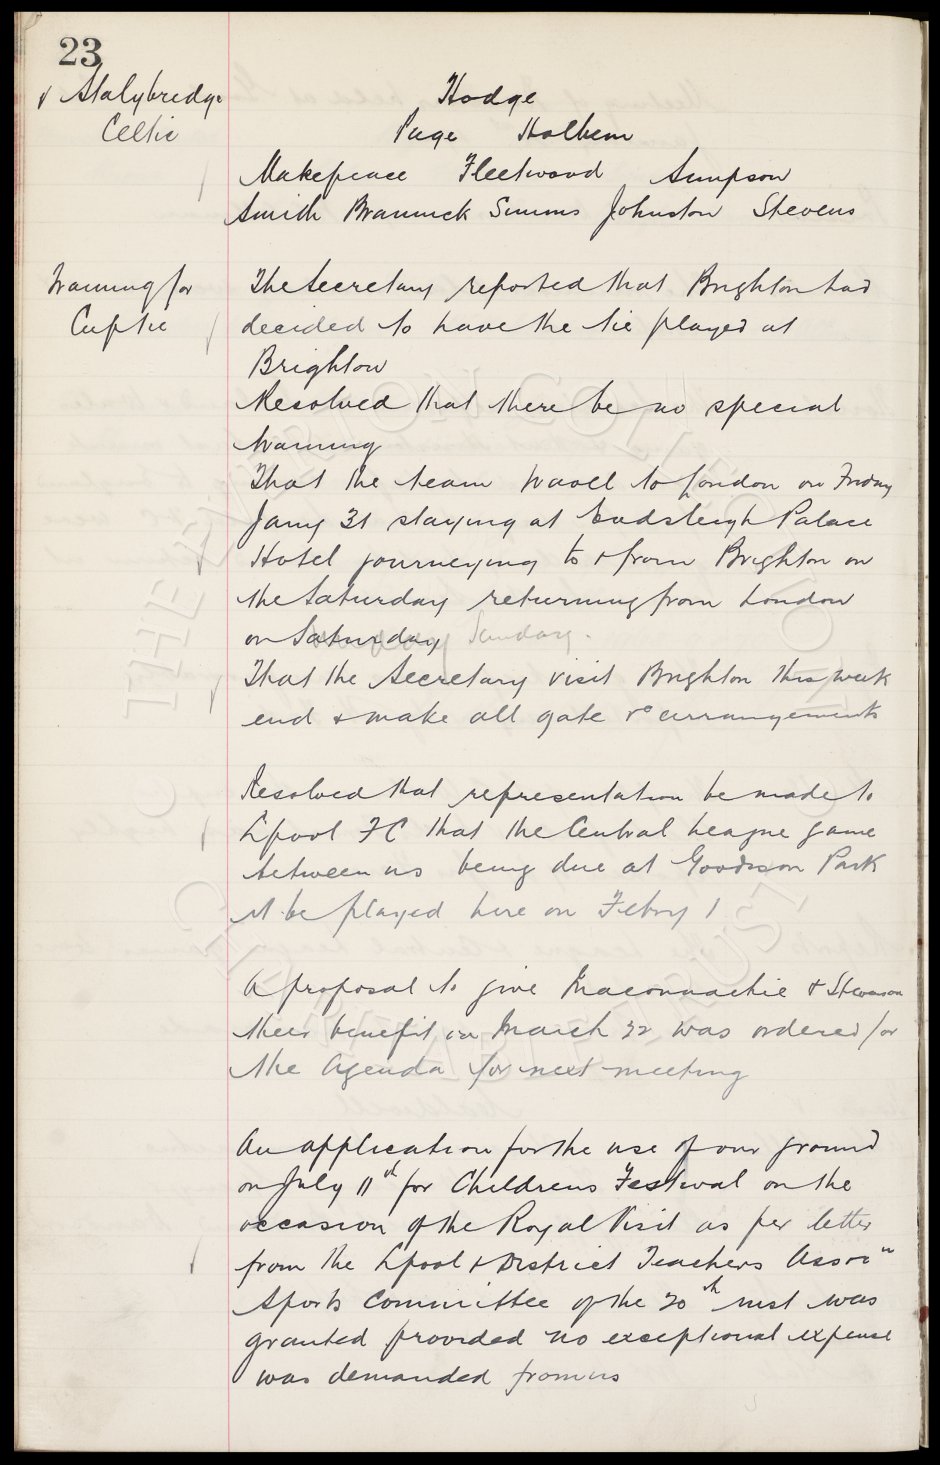 23
v Stalybridge
Celtic
Hodge
Page Holbem
Makepeace Fleetwood Simpson
Smith Brannick Simms Johnston Stevens
Training for
Cup tie
The Secretary reported that Brighton had
decided to have the tie played at
Brighton
Resolved that there be no special
training
That the team travel to London on Friday
Jany 31 staying at Endsleigh Palace
Hotel journeying to & from Brighton on
the Saturday returning from London
on Saturday Sunday.
That the Secretary visit Brighton this week
end & make all gate &c arrangements
Resolved that representation be made to
Lpool FC that the Central League game
between us being due at Goodison Park
it be played here on Febry 1
A proposal to give Maconnachie & Stevenson
their benefit in March 22 was ordered for
the Agenda for next meeting
An application for the use of our ground
on July 11th for Childrens Festival on the
occasion of the Royal Visit as per letter
from the Lpool & District Teachers Assocn
Sports Committee of the 20th inst was
granted provided no exceptional expense
was demanded from us